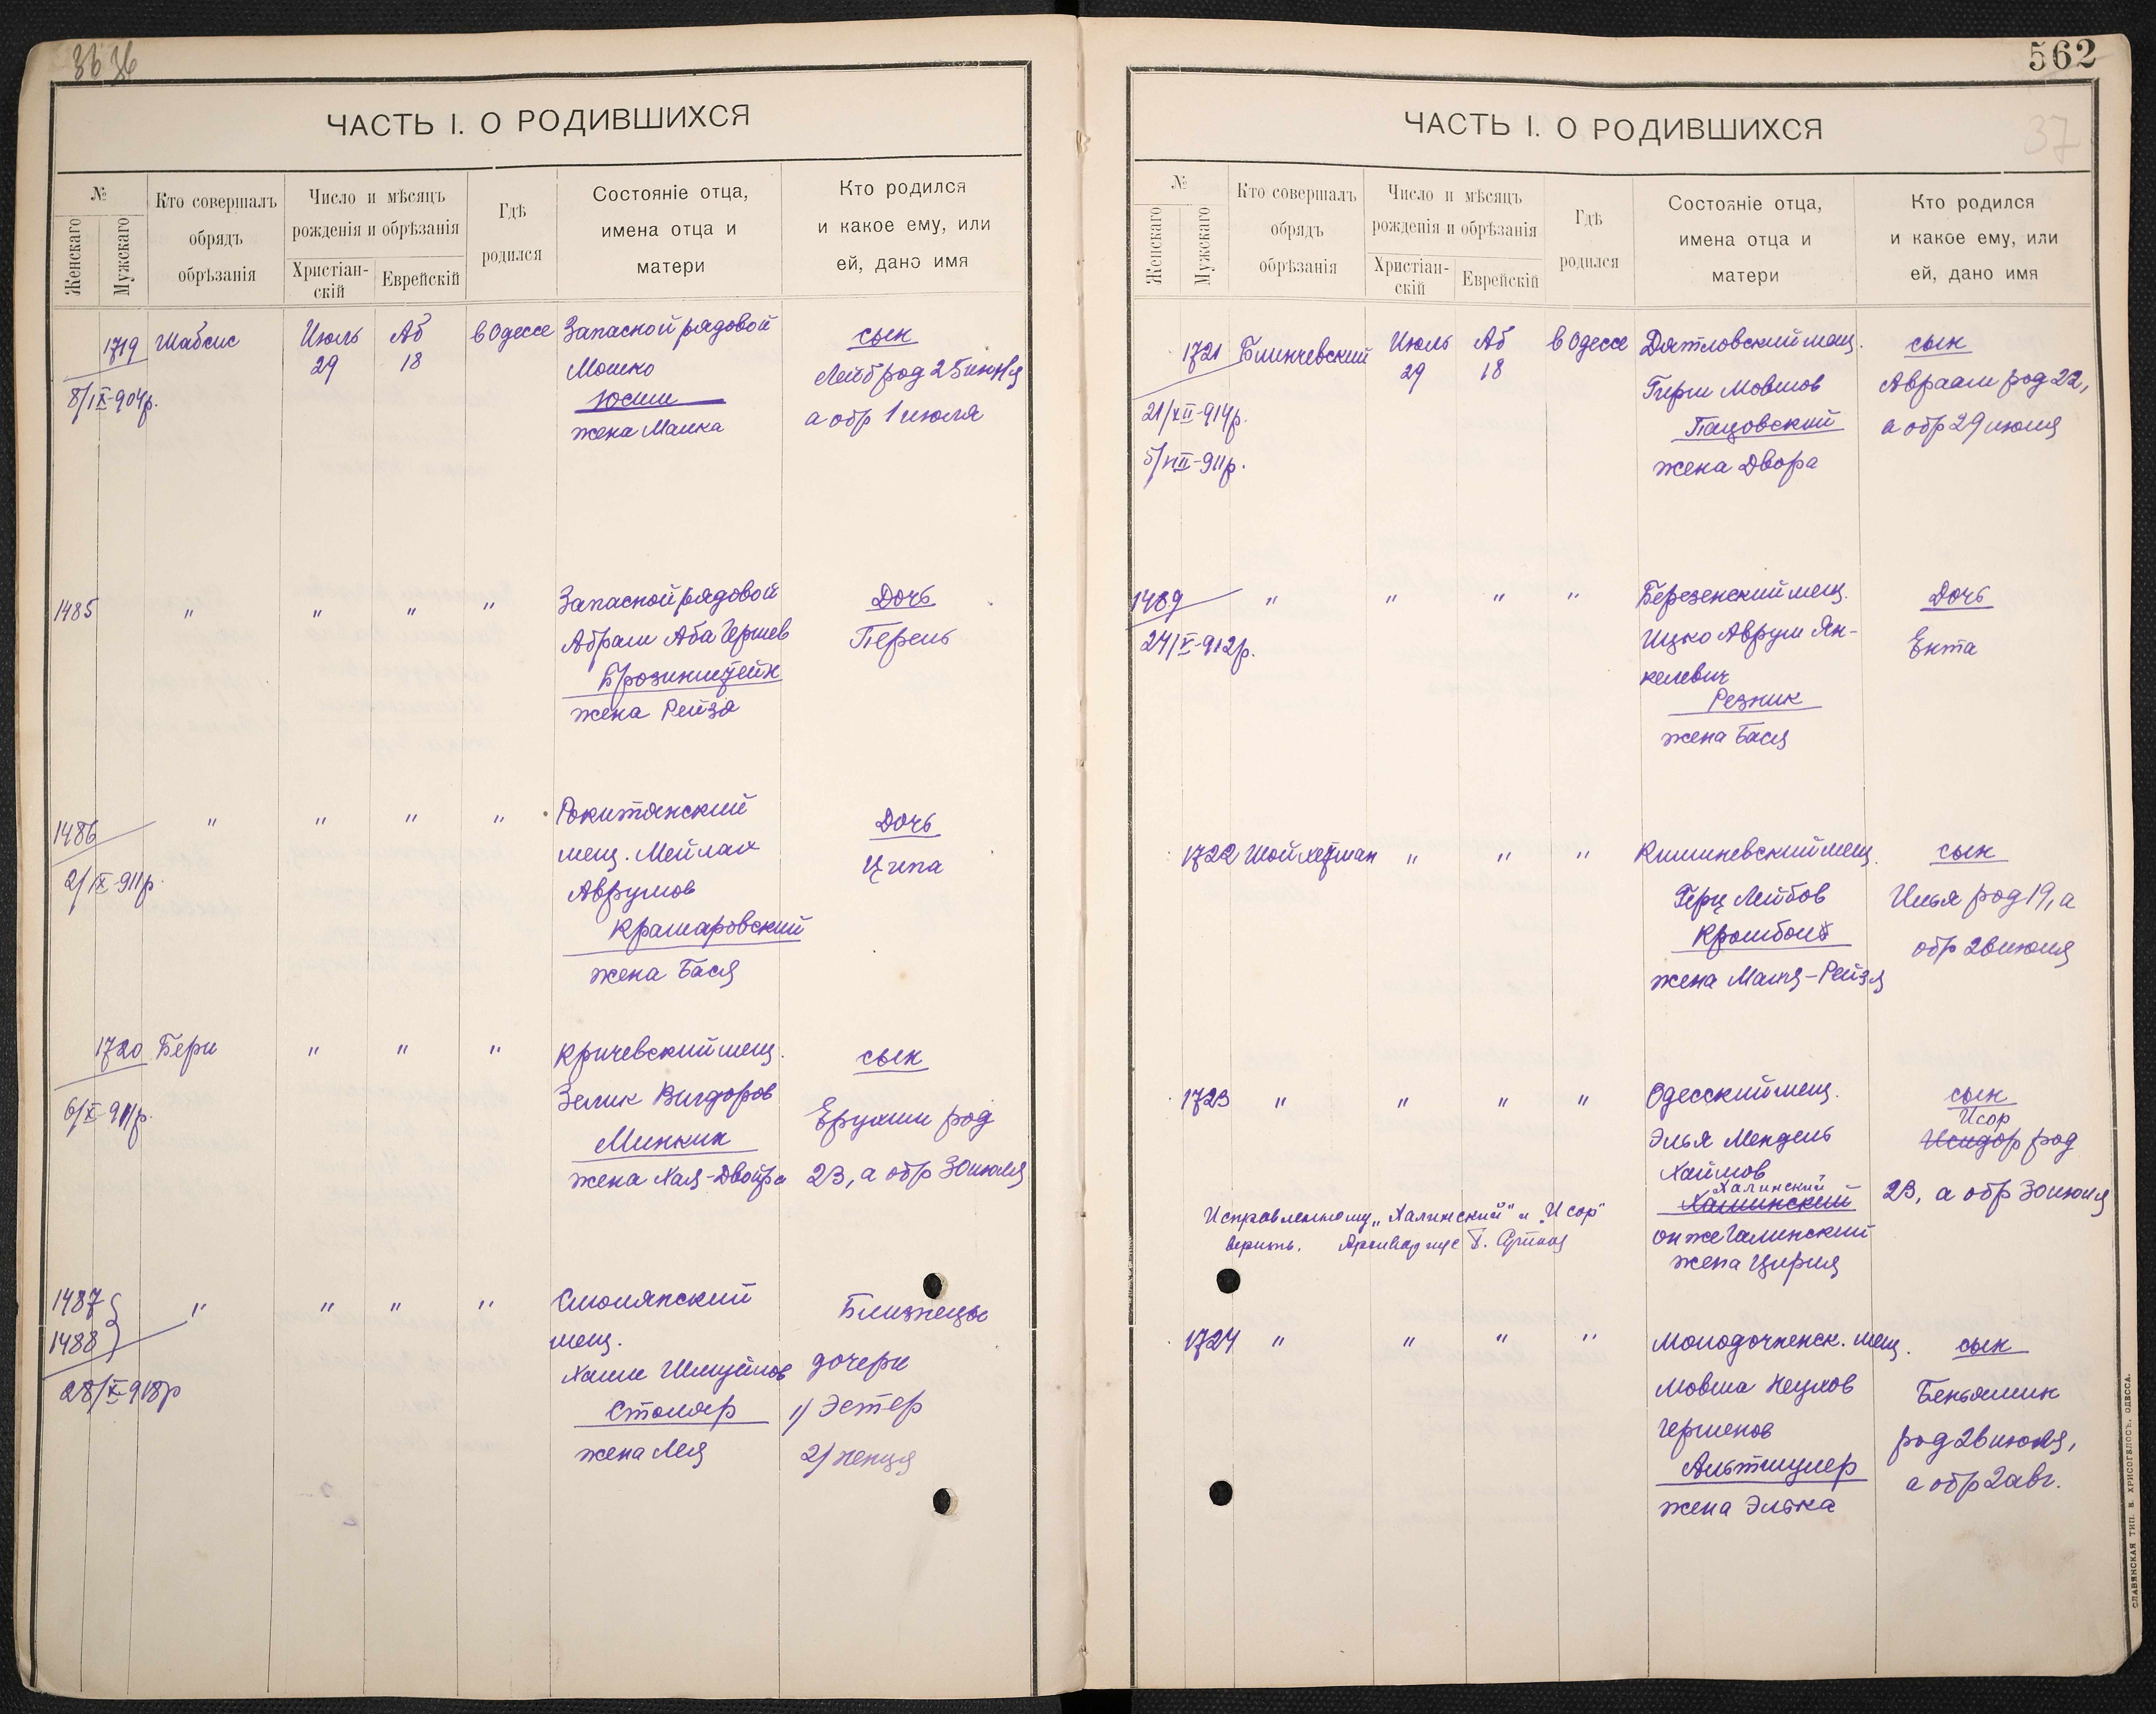 36 36
ЧАСТЬ I. О РОДИВШИХСЯ
№
Женскаго
Мужскаго
Кто совершалъ
обрядъ
обрѣзанія
Число и мѣсяцъ
рожденія и обрѣзанія
Христіан-
скій
Еврейскій
Гдѣ
родился
Состояніе отца,
имена отца и
матери
Кто родился
и какое ему, или
ей, дано имя
1719 Шабсис Июль Аб в Одессе Запасной рядовой сын
29 18 Мошко Лейб род 25 июня
8/IX-904р. Юсим а обр 1 июля
жена Манка
1485 " " " " Запасной рядовой Дочь
Абрам Аба Гершев Перель
Брозинштейн
жена Рейза
1486 " " " " Рокитянский Дочь
мещ. Мейлах Ципа
2/IX-911р. Аврумов
Крамаровский
жена Бася
1720 Бери " " " Кричевский мещ. сын
6/X-911р. Зелик Вигдоров Ерухим род
Минкин
жена Хая-Двойра 23, а обр 30 июля
1487 " " " " Смолянский Близнецы
1488 мещ.
28/X-918р Хаим Шмуйлов дочери
Столяр 1) Эстер
жена Лея 2) Хенця
562
37
ЧАСТЬ I. О РОДИВШИХСЯ
№
Женскаго
Мужскаго
Кто совершалъ
обрядъ
обрѣзанія
Число и мѣсяцъ
рожденія и обрѣзанія
Христіан-
скій
Еврейскій
Гдѣ
родился
Состояніе отца,
имена отца и
матери
Кто родился
и какое ему, или
ей, дано имя
1721 Блинчевский Июль Аб в Одессе Дятловский мещ. сын
29 18 Гирш Мовшов Авраам род 22,
21/XII-914р. Пацовский а обр 29 июля
5/VII-911р. жена Двора
1489 " " " " Березенский мещ. Дочь
24/V-912р. Ицко Аврум Ян- Ента
келевич
Резник
жена Бася
1722 Шойхетман " " " Кишиневский мещ. сын
Герц Лейбов Илья род 19, а
обр 26 июля
жена Маля-Рейзя
1723 " " " " Одесский мещ. сын
Исор
Элья Мендель Исидор род
Хаймов
Халинский 23, а обр 30 июля
Исправленному "Халинский" и "Исор"
верить.
он же Галинский
жена Цирля
1724 " " " " Молодочненск. мещ. сын
Мовша Неухов Беньямин
Гершенов род 26 июля,
Альтшулер а обр 2 авг.
жена Элька
СЛАВЯНСКАЯ ТИП. Н. ХРИСОГЕЛОСЪ, ОДЕССА.